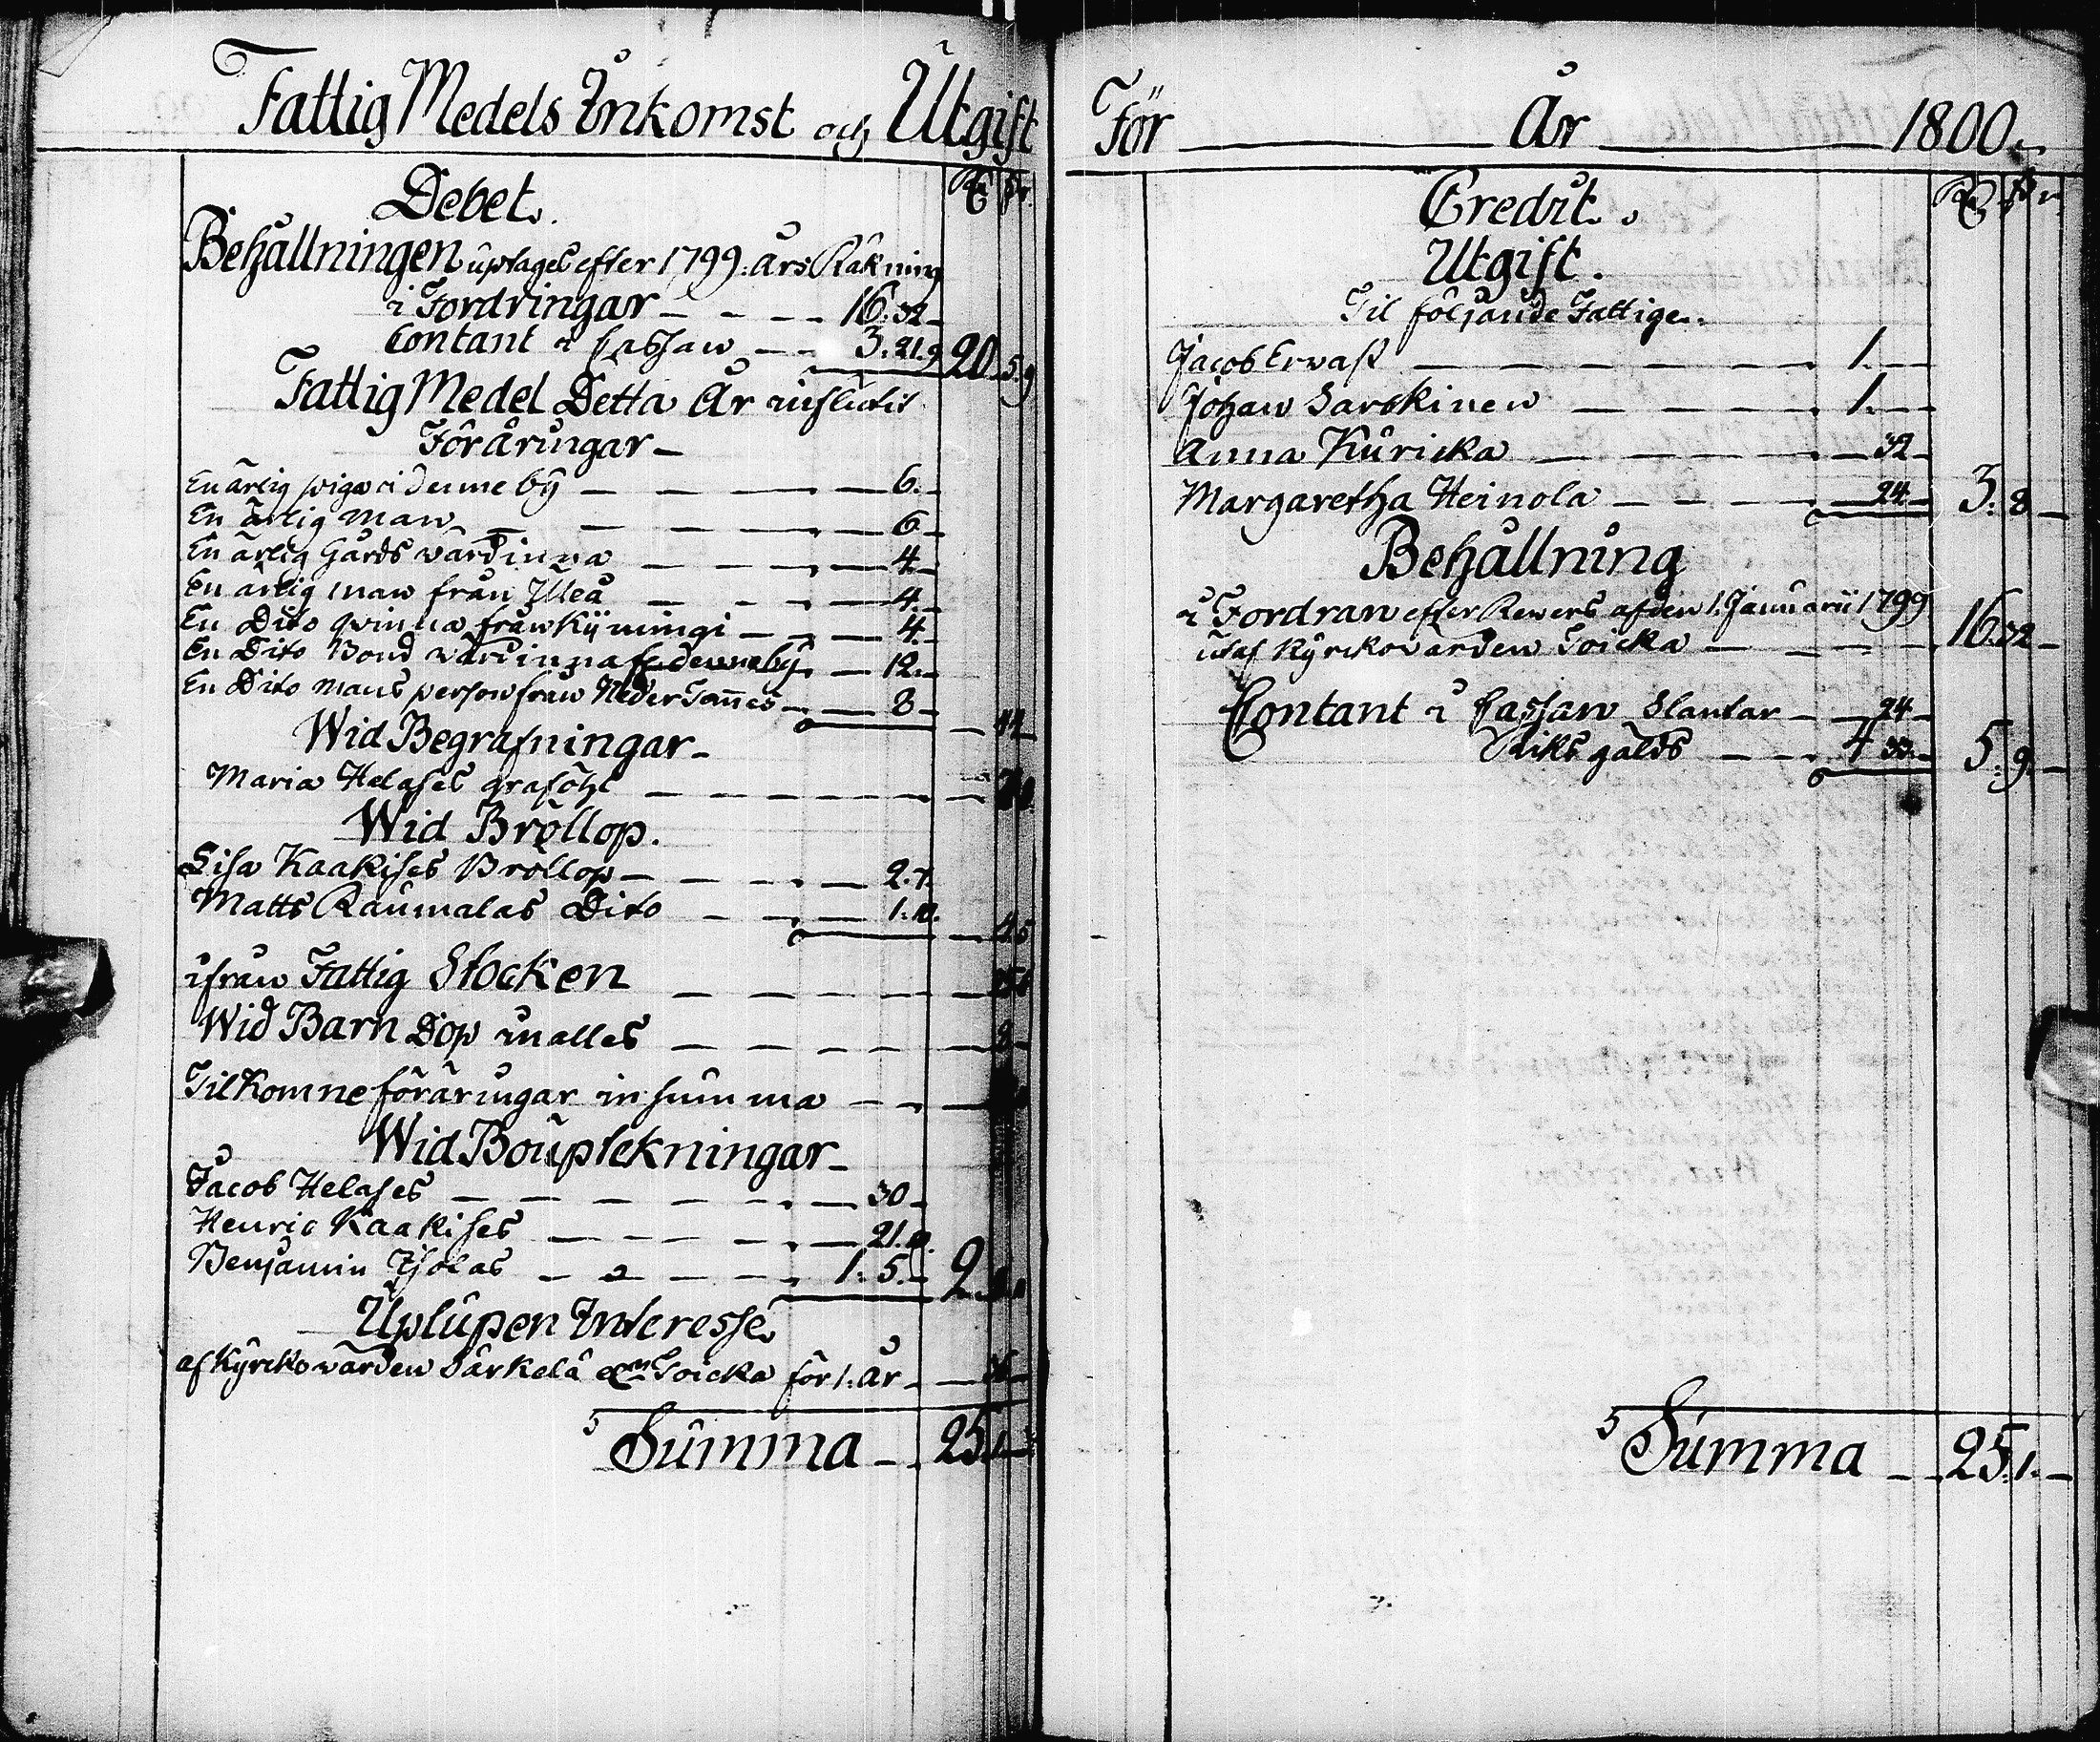 Fattig Medels Inkomst och Utgift
Debet.
Behållningen uptages efter 1799: års Räkning
i Fordringar 16. 32
Contant i Cassan 3. 21. 9 20. 5. 9
Fattig Medel Detta År influtit
Föräringar
En ärlig piga i denne by 6.
En ärlig man 6
En ärlig Gårds wärdinna 4
En ärlig man från Uleå 4.
En Dito qwinna från Kymingi 4.
En Dito Bond wärdinna fr denna by 12
En Dito mans person från Neder Tornes 8
44
Wid Begrafningar
Maria Helases grafölh
Wid Bröllop.
Lisa Kaakises Bröllop 2. 7.
Matts Raumalas Dito 1. 10.
4 5
ifrån Fattig Stocken
Wid Barn Dop in alles 8
Tilkomne föräringar in summa
Wid Boupteckningar
Jacob Helases 30
Henric Kaakises 21. 10.
Benjamin Isolas 1. 5. 2.
Uplupen Interesse
af Kyrckowärden Särkelä och Toicka för 1. år
Summa 25. 1.
För År 1800.
Credit.
Utgift.
Til följande Fattige.
Jacob Erwast 1.
Johan Sarckinen 1.
Anna Kuricka 32
Margaretha Heinola 24 3. 8
Behållning
i Fordran efter Revers af den 1. Januarii 1799
utaf Kyrckowärden Toicka 16. 32
Contant i Cassan Slantar 24
Riksgälds 4 33 5. 9.
Summa 25. 1.